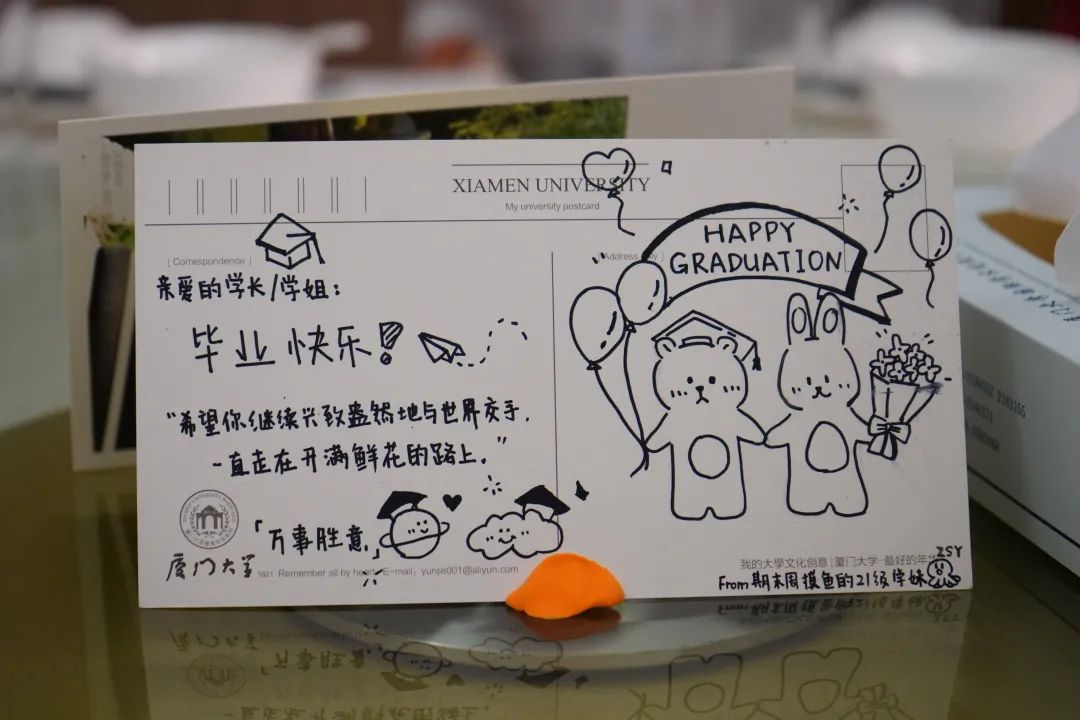 XIAMEN UNIVERSITY
My university postcard
[ Correspondence ]
亲爱的学长/学姐:
毕业快乐!
"希望你继续兴致盎然地与世界交手,
一直走在开满鲜花的路上。"
「万事胜意」
厦门大学
1921 Remember all by heart E-mail: yunjie001@aliyun.com
HAPPY
GRADUATION
我的大學文化創意|厦门大学·最好的年华
ZSY
From期末周摸鱼的21级学妹